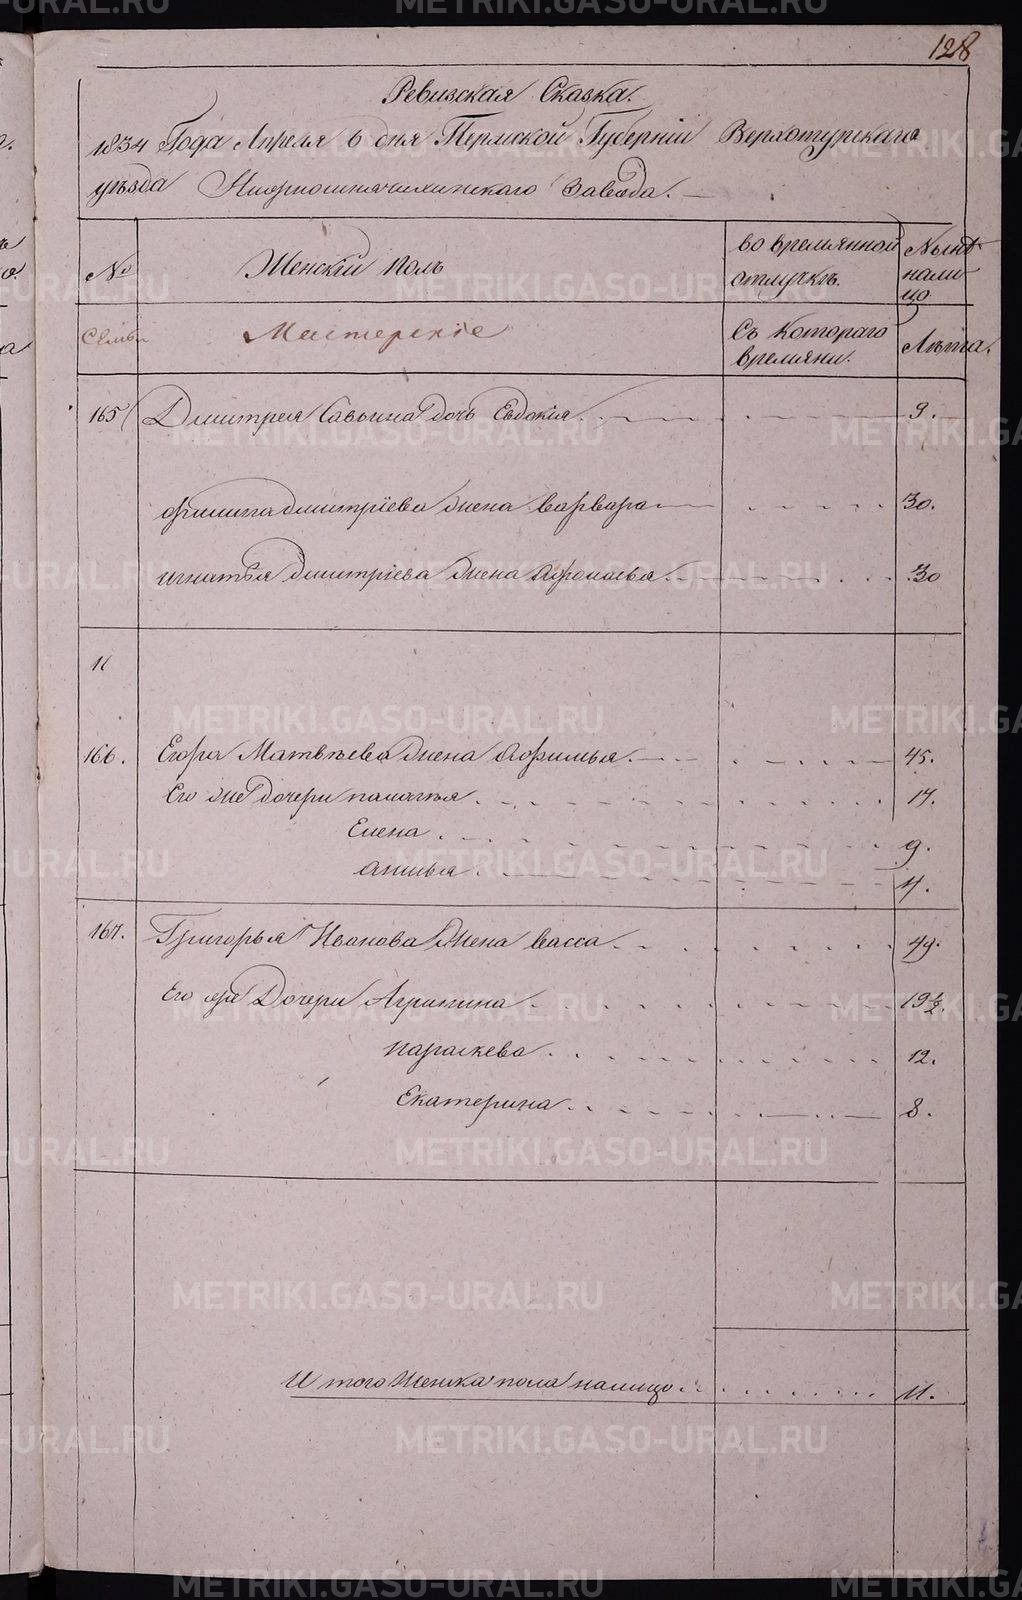 128
Ревизская Сказка.
1834 Года Апреля 6 дня Пермской Губерніи Верхотурскаго
уѣзда Завода.
№ Женскій полъ во времянной отлучкѣ. Нынѣ налицо
Семьи Мастерскіе Съ котораго времяни. Лѣта.
165 Дмитрея Савьина дочь Евдокія. 9.
Филипа Дмитріева жена Варвара 30.
Игнатья Дмитріева жена Афонасья. 30
11
166. Егора Матвѣева жена Афимья. 45.
Его же дочери палагья. 17.
Елена. 9.
анисья. 4.
167. Григорья Иванова жена васса. 49.
Его же Дочери Агрипина 19 1/2.
параскева. 12.
Екатерина. 8.
И того Женска пола налицо. 11.
METRIKI.GASO-URAL.RU